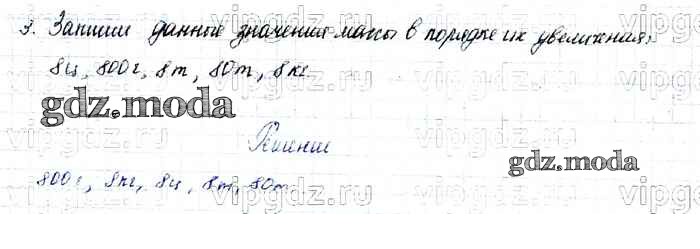 3. Запиши данные значения массы в порядке их увеличения:
8ц, 800г, 8т, 80т, 8кг.
gdz.moda
Решение
gdz.moda
800г, 8кг, 8ц, 8т, 80т
vipgdz.ru